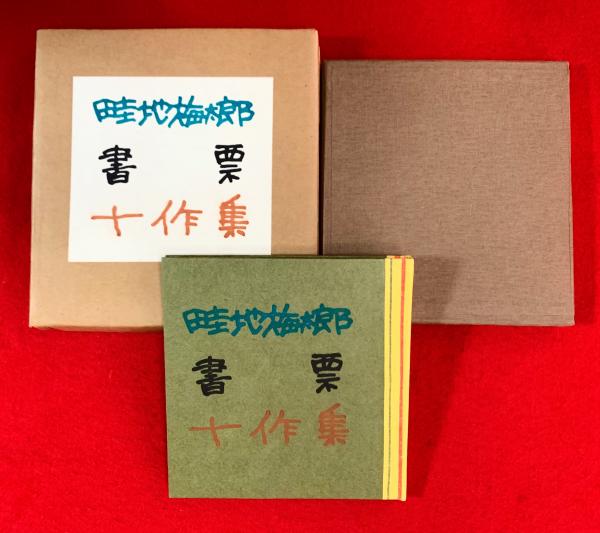 畦地梅太郎
書票
十作集
畦地梅太郎
書票
十作集